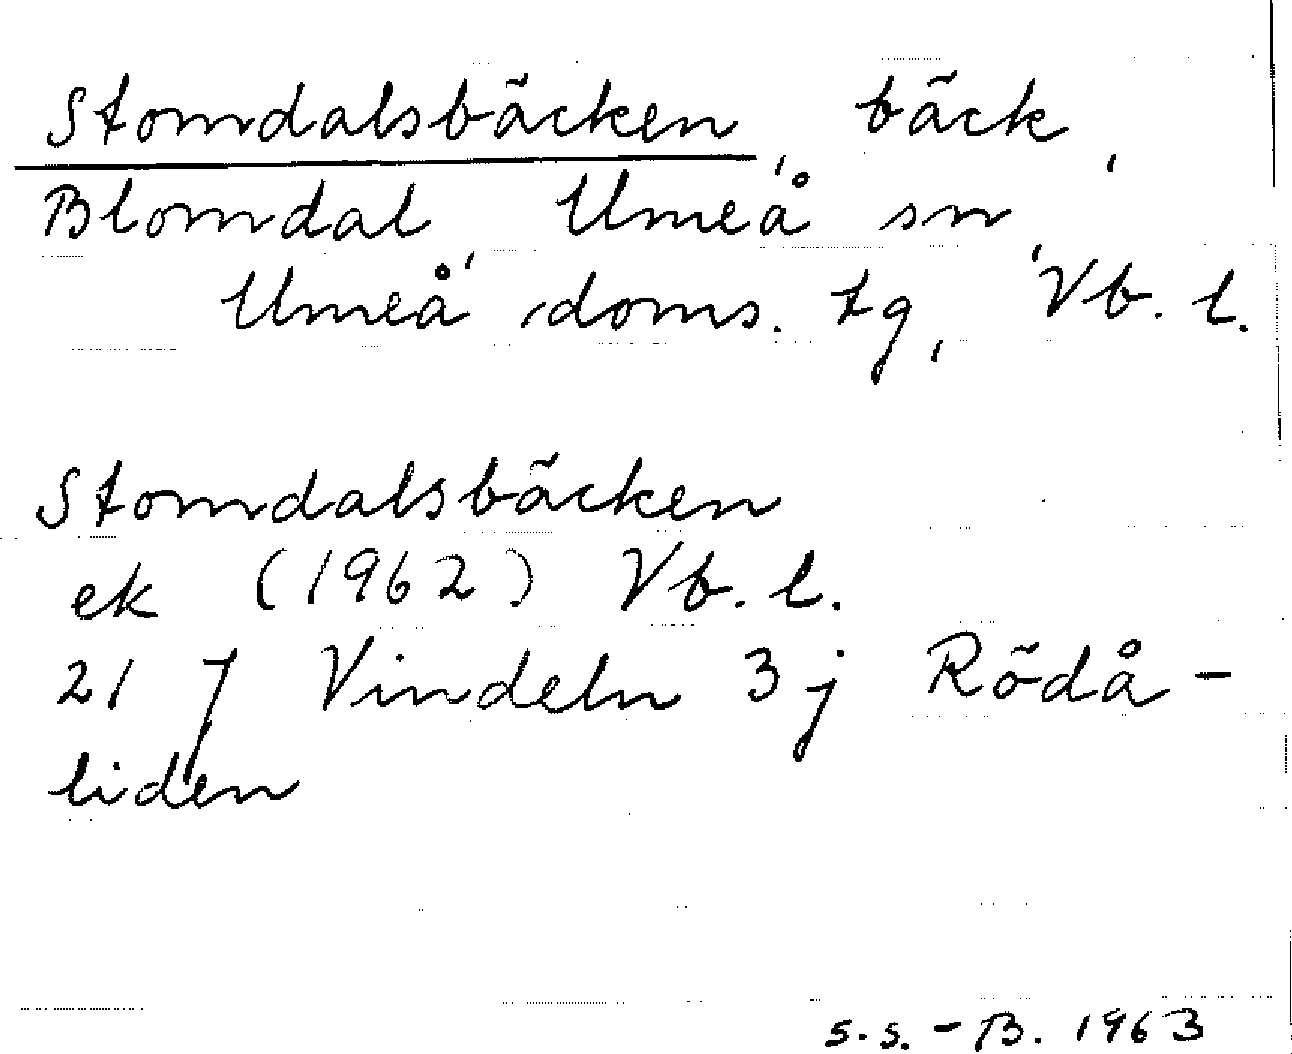 Stomdalsbäcken, bäck,
Blomdal, Umeå sn,
Umeå doms. tg, Vb. l.
Stomdalsbäcken
ek (1962) Vb. l.
21 J Vindeln 3 j Rödå-
liden
S.S. - B. 1963